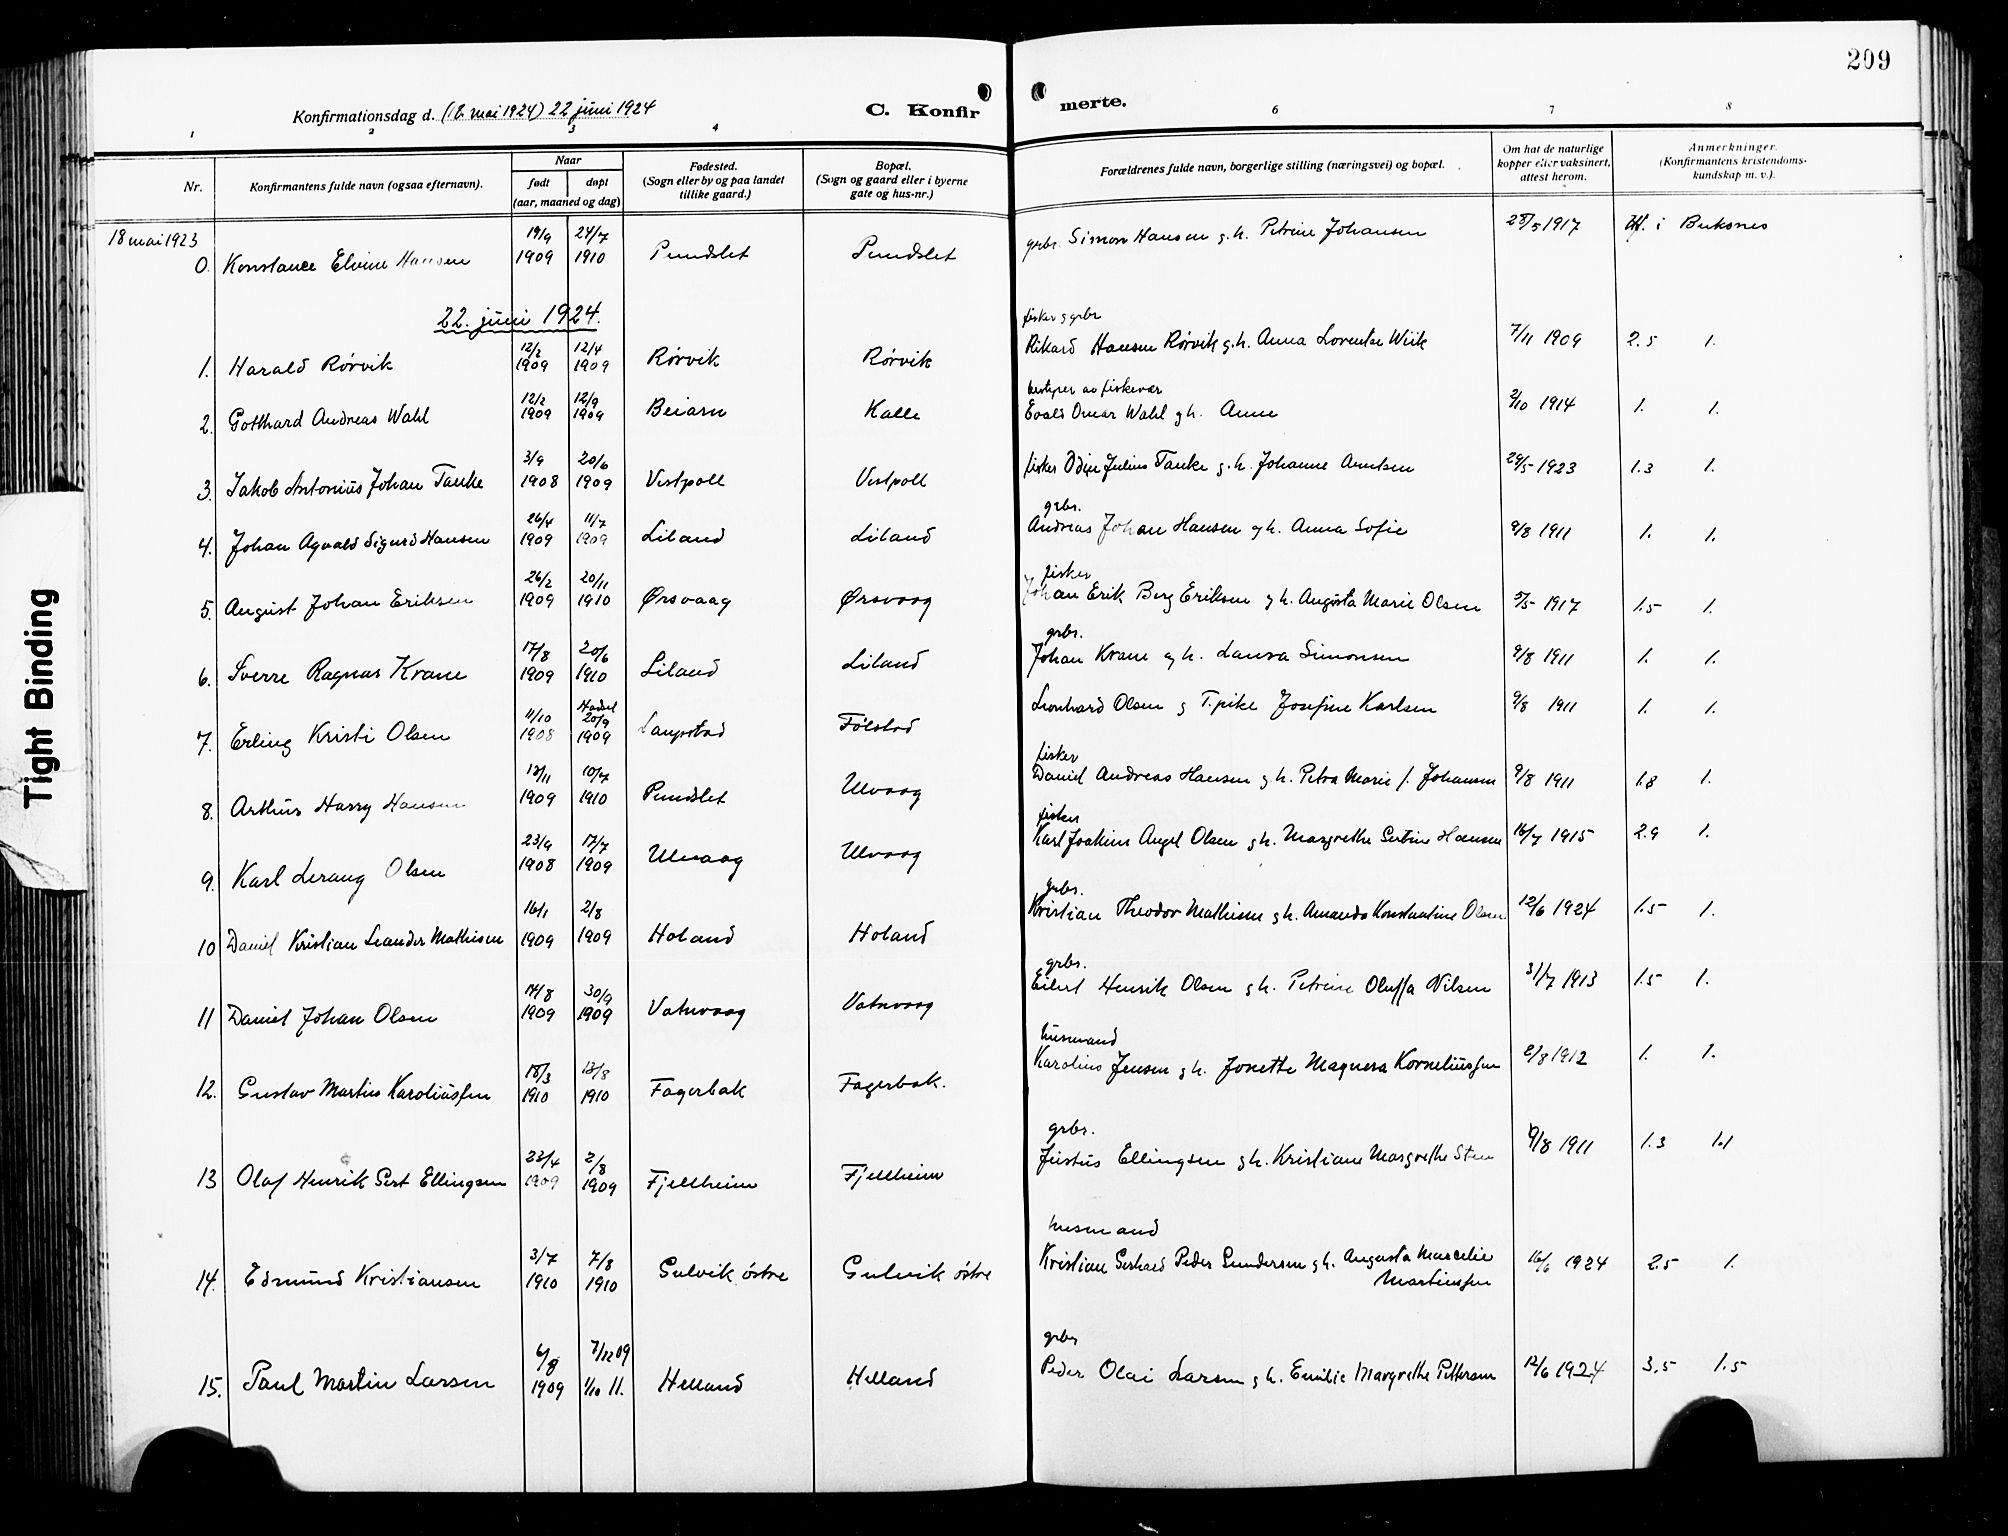 209
Konfirmationsdag d. (18. mai 1924) 22 juni 1924
C. Konfir
merte.
1 2 3 4 6 7 8
Nr.
Konfirmantens fulde navn (ogsaa efternavn).
Naar
født døpt
(aar, maaned og dag)
Fødested.
(Sogn eller by og paa landet
tillike gaard.)
Bopæl.
(Sogn og gaard eller i byerne
gate og hus-nr.)
Forældrenes fulde navn, borgerlige stilling (næringsvei) og bopæl.
Om hat de naturlige
kopper eller vaksinert,
attest herom.
Anmerkninger.
(Konfirmantens kristendoms-
kundskap m. v.).
18 mai 1923 19/9 24/7
0. Konstance Elvine Hansen 1909 1910 Pundslet Pundslet grbr. Simon Hansen g. h. Petrine Johansen 28/5 1917 i Buksnes
22. juni 1924.
fisker g grbr
12/2 12/4
1. Harald Rørvik 1909 1909 Rørvik Rørvik Rikard Hansen Rørvik g. h. Anna Lorentse Wiik 7/11 1909 2.5 1.
bestyrer av fiskevær
12/2 12/9
2. Gotthard Andreas Wahl 1909 1909 Beiarn Kalle Evald Omar Wahl g h. Anne 2/10 1914 1. 1.
3/9 20/6
3. Jakob Antonius Johan Tanke 1908 1909 Vestpoll Vestpoll fisker Odin Julius Tanke g. h. Johanne Arntsen 29/5 1923 1.3 1.
grbr.
26/4 11/7
4. Johan Agvald Sigurd Hansen 1909 1909 Liland Liland Andreas Johan Hansen g h. Anna Sofie 9/8 1911 1. 1.
fisker
26/2 20/11
5. August Johan Eriksen 1909 1910 Ørsvaag Ørsvaag Johan Erik Berg Eriksen g h. Augusta Marie Olsen 5/5 1917 1.5 1.
grbr.
17/8 20/6
6. Sverre Ragnar Krane 1909 1910 Liland Liland Johan Krane g h. Laura Simonsen 9/8 1911 1. 1.
Hadsel
11/10 20/9
7. Erling Kristi Olsen 1908 1909 Laupstad Følstad Leonhard Olsen g T. pike Josefine Karlsen 9/8 1911 1. 1.
fisker
13/11 10/7
8. Arthur Harry Hansen 1909 1910 Pundslet Ulvaag Daniel Andreas Hansen g h. Petra Marie f. Johansen 9/8 1911 1.8 1.
fisker
23/9 17/7
9. Karl Lerang Olsen 1908 1909 Ulvaag Ulvaag Karl Joakim Angel Olsen g h. Margrethe Sertine Hansen 16/7 1915 2.9 1.
grbr.
16/1 2/8
10 Daniel Kristian Leander Mathisen 1909 1909 Holand Holand Kristian Theodor Mathisen g h. Amanda Konstantine Olsen 12/6 1924 1.5 1.
grbr.
14/8 30/9
11 Daniel Johan Olsen 1909 1909 Vatnvaag Vatnvaag Eilert Henrik Olsen g h. Petrine Oluffa Nilsen 31/7 1913 1.5 1.
husmand
18/3 13/8
12. Gustav Martin Karoliussen 1910 1910 Fagerbak Fagerbak. Karolius Jensen g h. Jonette Magnera Korneliussen 2/8 1912 1. 1.
grbr.
23/4 2/8
13 Olaf Henrik Gert Ellingsen 1909 1909 Fjellheim Fjellheim Justus Ellingsen g h. Kristiane Margrethe Steen 9/8 1911 1.3 1.1
husmand
3/7 7/8
14. Edmund Kristiansen 1910 1910 Gulvik østre Gulvik østre Kristian Gerhard Peder Gundersen g h. Augusta Marcelie 16/6 1924 2.5 1.
Martinussen
grbr
6/8 7/12 09
15. Paul Martin Larsen 1909 1/10 11. Helland Helland Peder Olai Larsen g h. Emilie Margrethe Pettersen 12/6 1924 3.5 1.5
Tight Binding